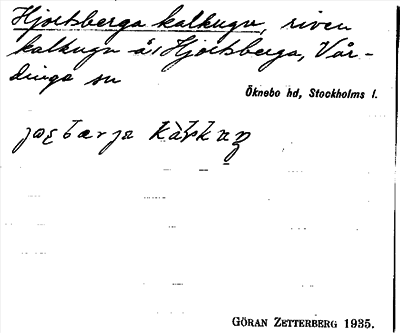 Hjortsberga kalkugn, riven
kalkugn å Hjortsberga, Vår-
dinge sn
Öknebo hd, Stockholms l.
GÖRAN ZETTERBERG 1935.